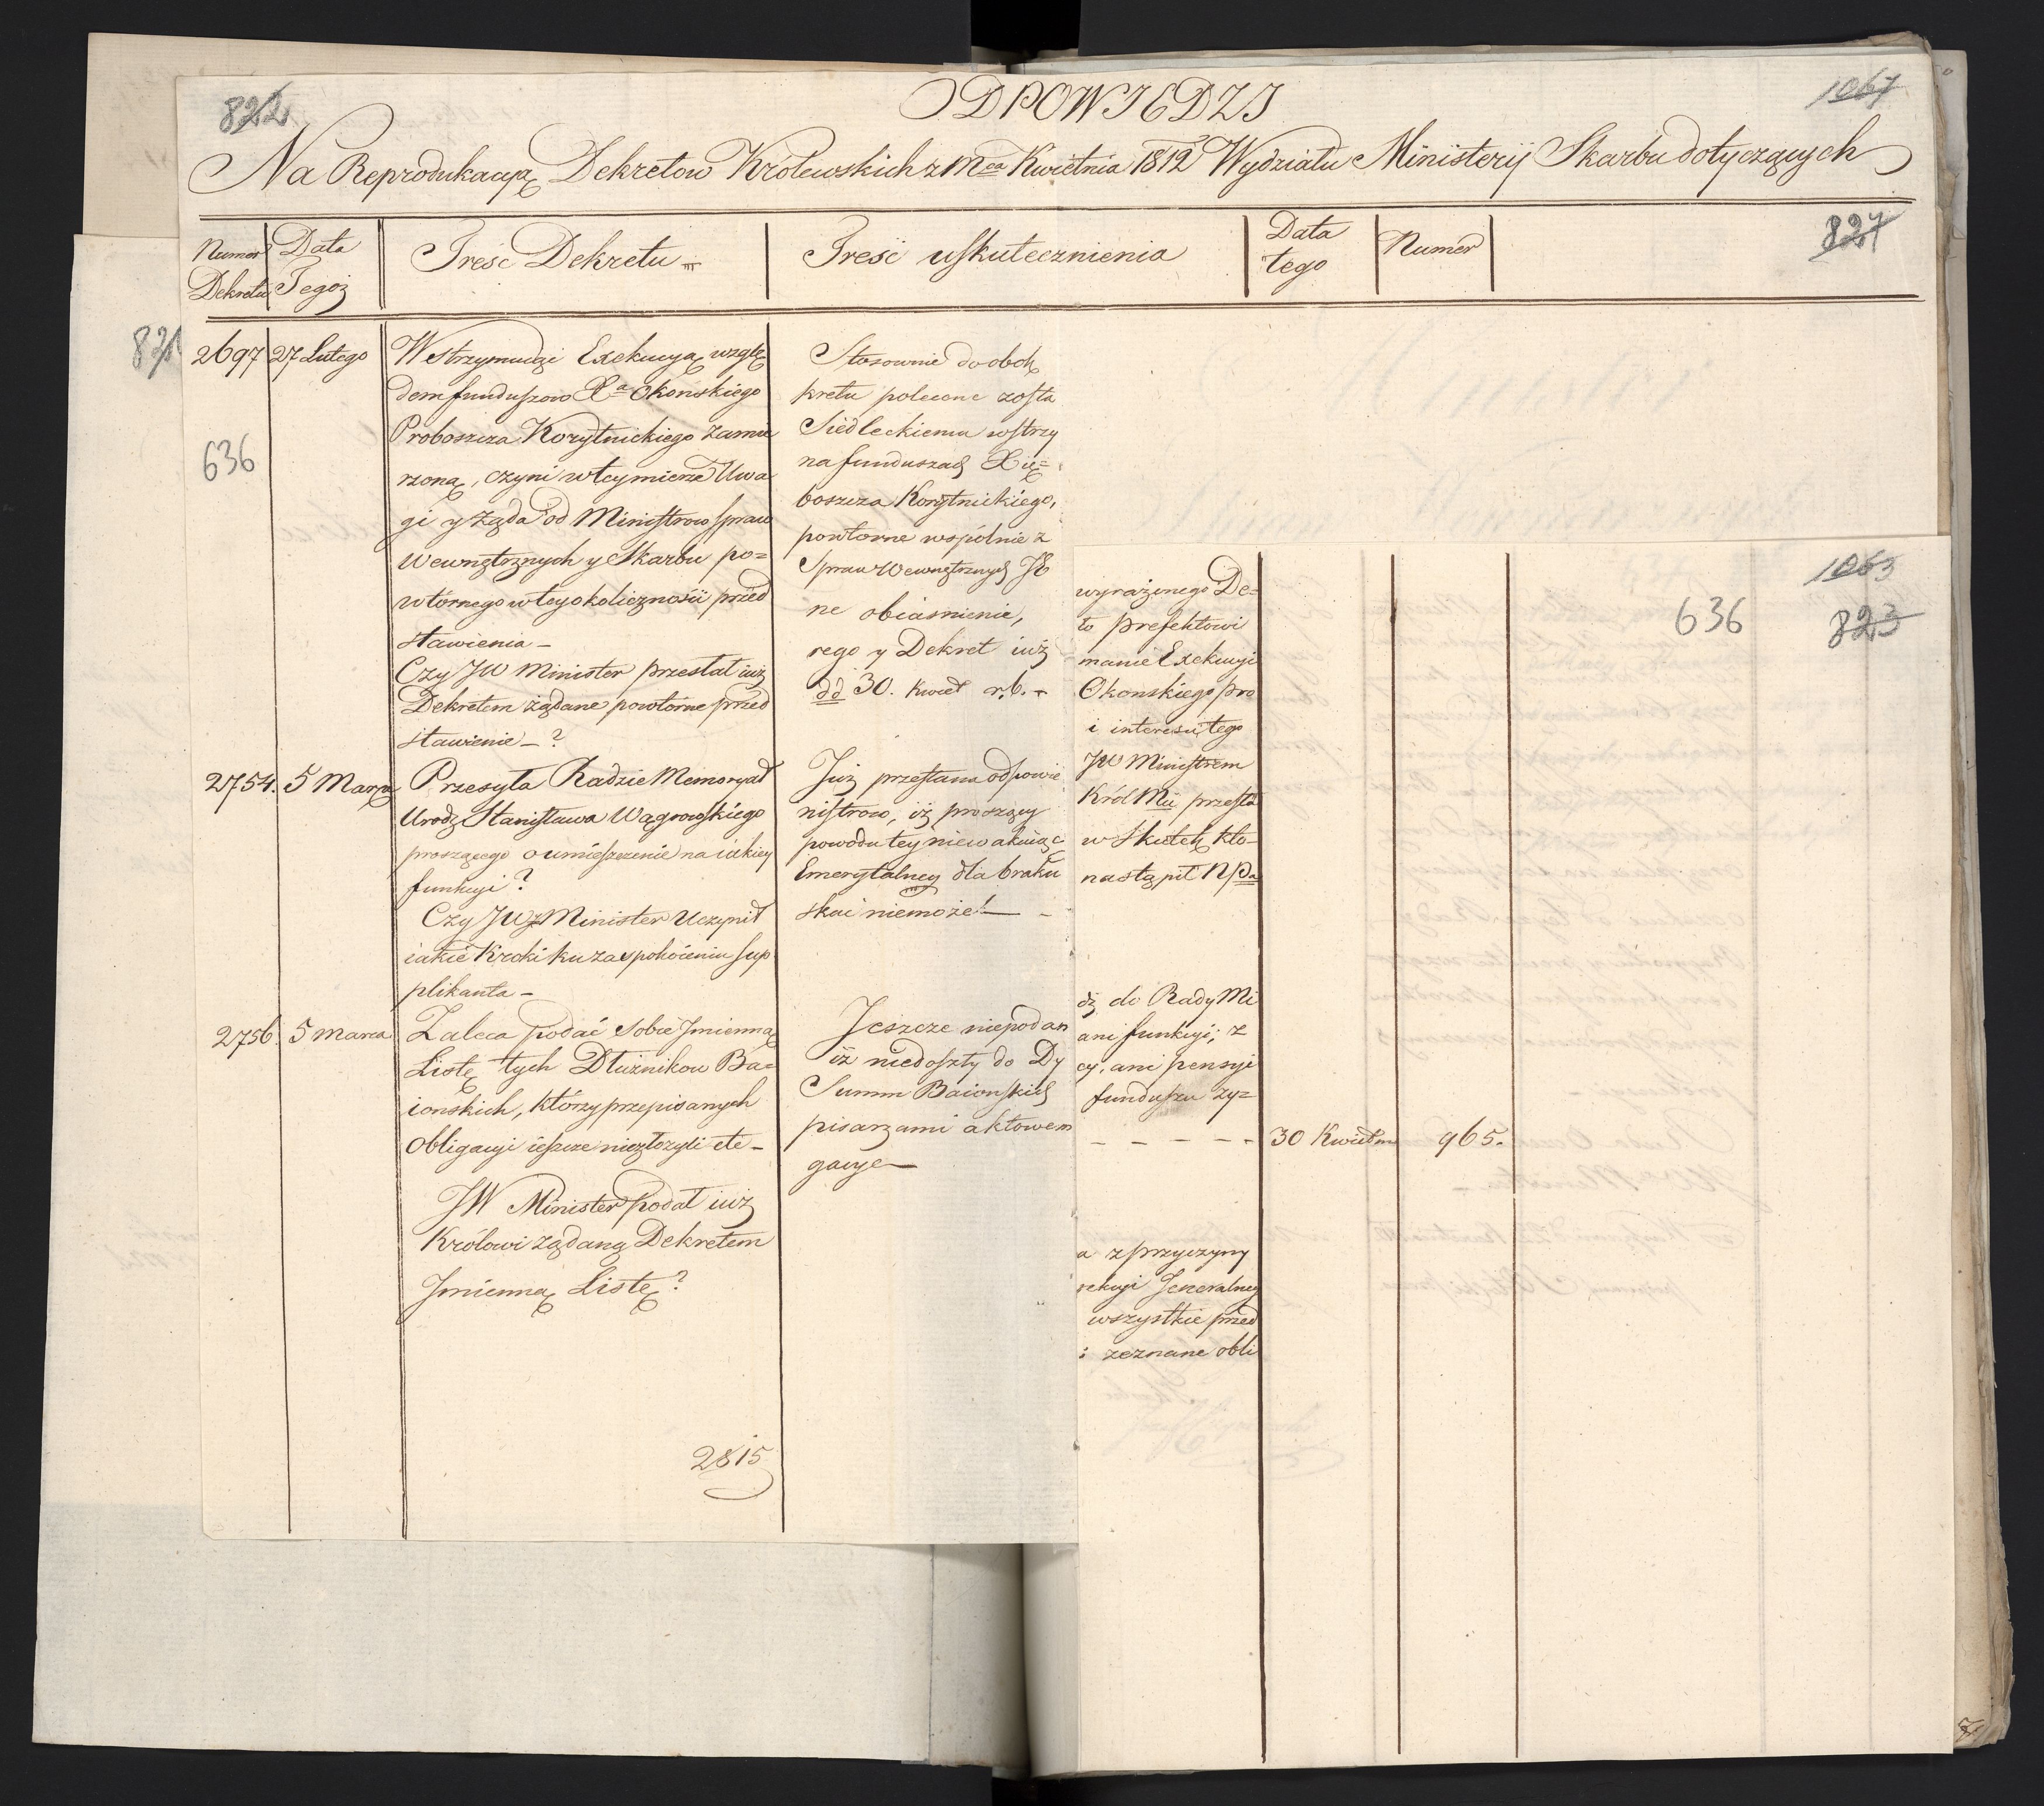 822
1067
ODPOWIEDZI
Na Reprodukacyą Dekretow Królewskich z Mca Kwietnia 1812 Wydziału Ministerij Skarbu dotyczących
827
Numer Dekretu
Data Tegoż
Treść Dekretu
Treść uskutecznienia
Data tego
Numer
821
2697
27 Lutego
636
Wstrzymuiąc Exekucyą wzglę
dem funduszow Xa Okońskiego
Proboszcza Korytnickiego zamie
rzoną, czyni w tey mierze Uwa
gi y żąda od Ministrow spraw
Wewnętrznych y Skarbu po=
wtórnego w tey okoliczności przed
stawienia –
Czy JW Minister przesłał iuż
Dekretem żądane powtórne przed
stawienie – ?
Stosownie do obok
kretu polecone zosta
Siedleckiemu wstrzy
na funduszach Xię=
boszcza Korytnickiego,
powtorne wspólnie z
Spraw Wewnętrznych JK
ne obiasnienie,
rego y Dekret iuż
dd 30. Kwiet r.b. –
2754.
5 Marca
Przesyła Radzie Memoryał
Urodz Stanisława Wągrowskiego
proszącego o umieszczenie na iakiey
funkcyi?
Czy JW Minister Uczynił
iakie Kroki ku zaspokoieniu sup
plikanta –
Już przesłana odpowie
nistrow, iż proszący
powodu tey niewakuiąc
Emerytalney dla braku
skać niemoże! –
2756.
5 Marca
Zaleca podać Sobie Jmienną
Listę tych Dłużnikow Ba=
ionskich, którzy przepisanych
Obligacyi ieszcze niezłożyli etc –
JW Minister podał iuż
Królowi żądaną Dekretem
Jmienną Listę?
Jeszcze niepodan
iż niedoszły do Dy
Summ Baionskich
pisarzami aktowem
gacye –
2815
1063
636
823
wyrażonego De=
to prefektowi
manie Exekucyi
Okonskiego pro
i interesu tego
JW Ministrem
Król Mci przesła
w Skutek kto-
nastąpił NPa
dź do Rady Mi
ani funkcyi; z
cy, ani pensyi
funduszu zy=
– – – – –
30 Kwietnia
965.
a z przyczyny
rekcyi Jeneralney
wszystkie przed
i zeznane obli